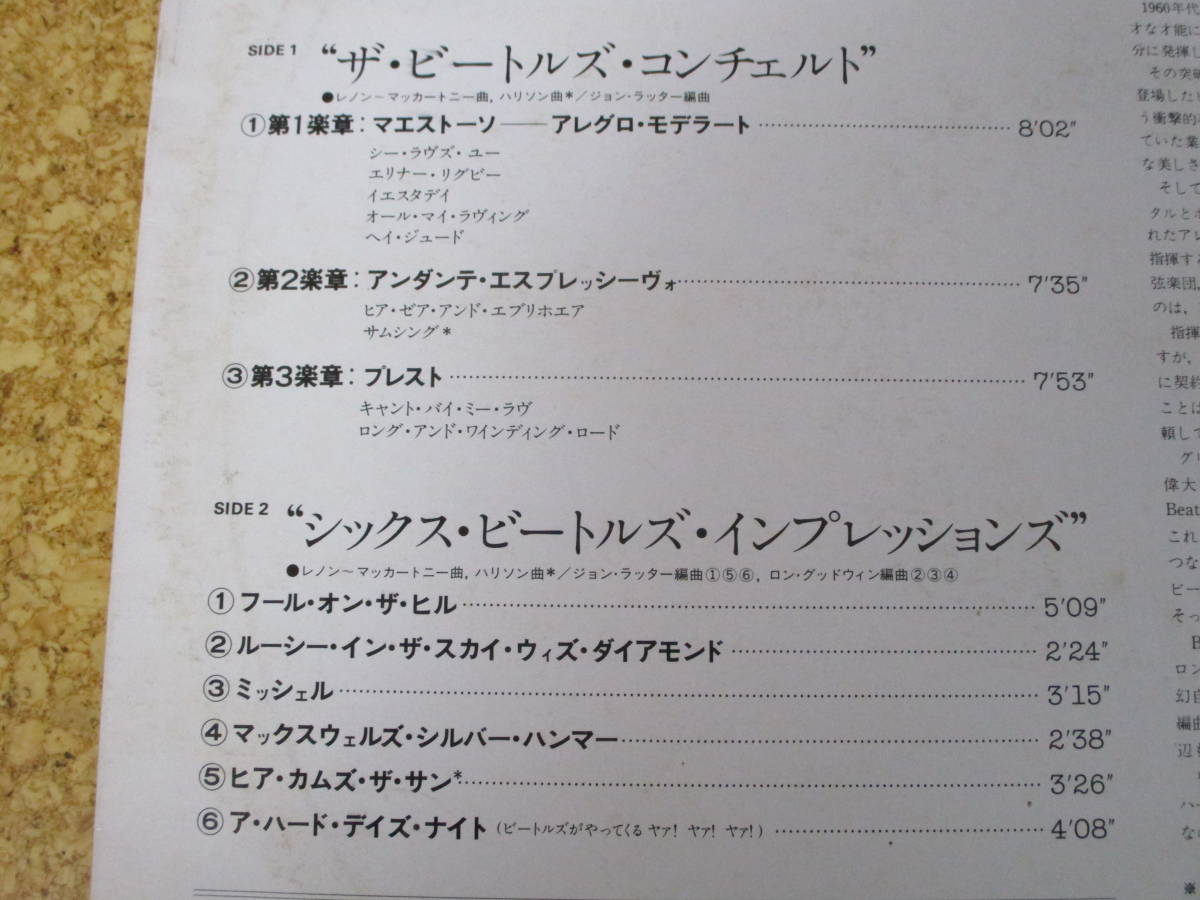 SIDE 1 “ザ・ビートルズ・コンチェルト”
●レノン〜マッカートニー曲, ハリソン曲*／ジョン・ラッター編曲
①第1楽章：マエストーソ――アレグロ・モデラート 8′02″
シー・ラヴズ・ユー
エリナー・リグビー
イエスタデイ
オール・マイ・ラヴィング
ヘイ・ジュード
②第2楽章：アンダンテ・エスプレッシーヴォ 7′35″
ヒア・ゼア・アンド・エブリホエア
サムシング*
③第3楽章：プレスト 7′53″
キャント・バイ・ミー・ラヴ
ロング・アンド・ワインディング・ロード
SIDE 2 “シックス・ビートルズ・インプレッションズ”
●レノン〜マッカートニー曲, ハリソン曲*／ジョン・ラッター編曲①⑤⑥, ロン・グッドウィン編曲②③④
①フール・オン・ザ・ヒル 5′09″
②ルーシー・イン・ザ・スカイ・ウィズ・ダイアモンド 2′24″
③ミッシェル 3′15″
④マックスウェルズ・シルバー・ハンマー 2′38″
⑤ヒア・カムズ・ザ・サン* 3′26″
⑥ア・ハード・デイズ・ナイト(ビートルズがやってくる ヤァ! ヤァ! ヤァ!) 4′08″
1960年代
オな才能に
分に発揮し
その突破
登場したビ
う衝撃的な
ていた業
な美しさ
そして
タルとオ
れたアレ
指揮する
弦楽団,
のは,
指揮
すが,
に契約
ことは
頼して
グリ
偉大
Beat
これ
つな
ビー
そっ
B
ロン
幻自
編曲
辺り
ハー
なの
※